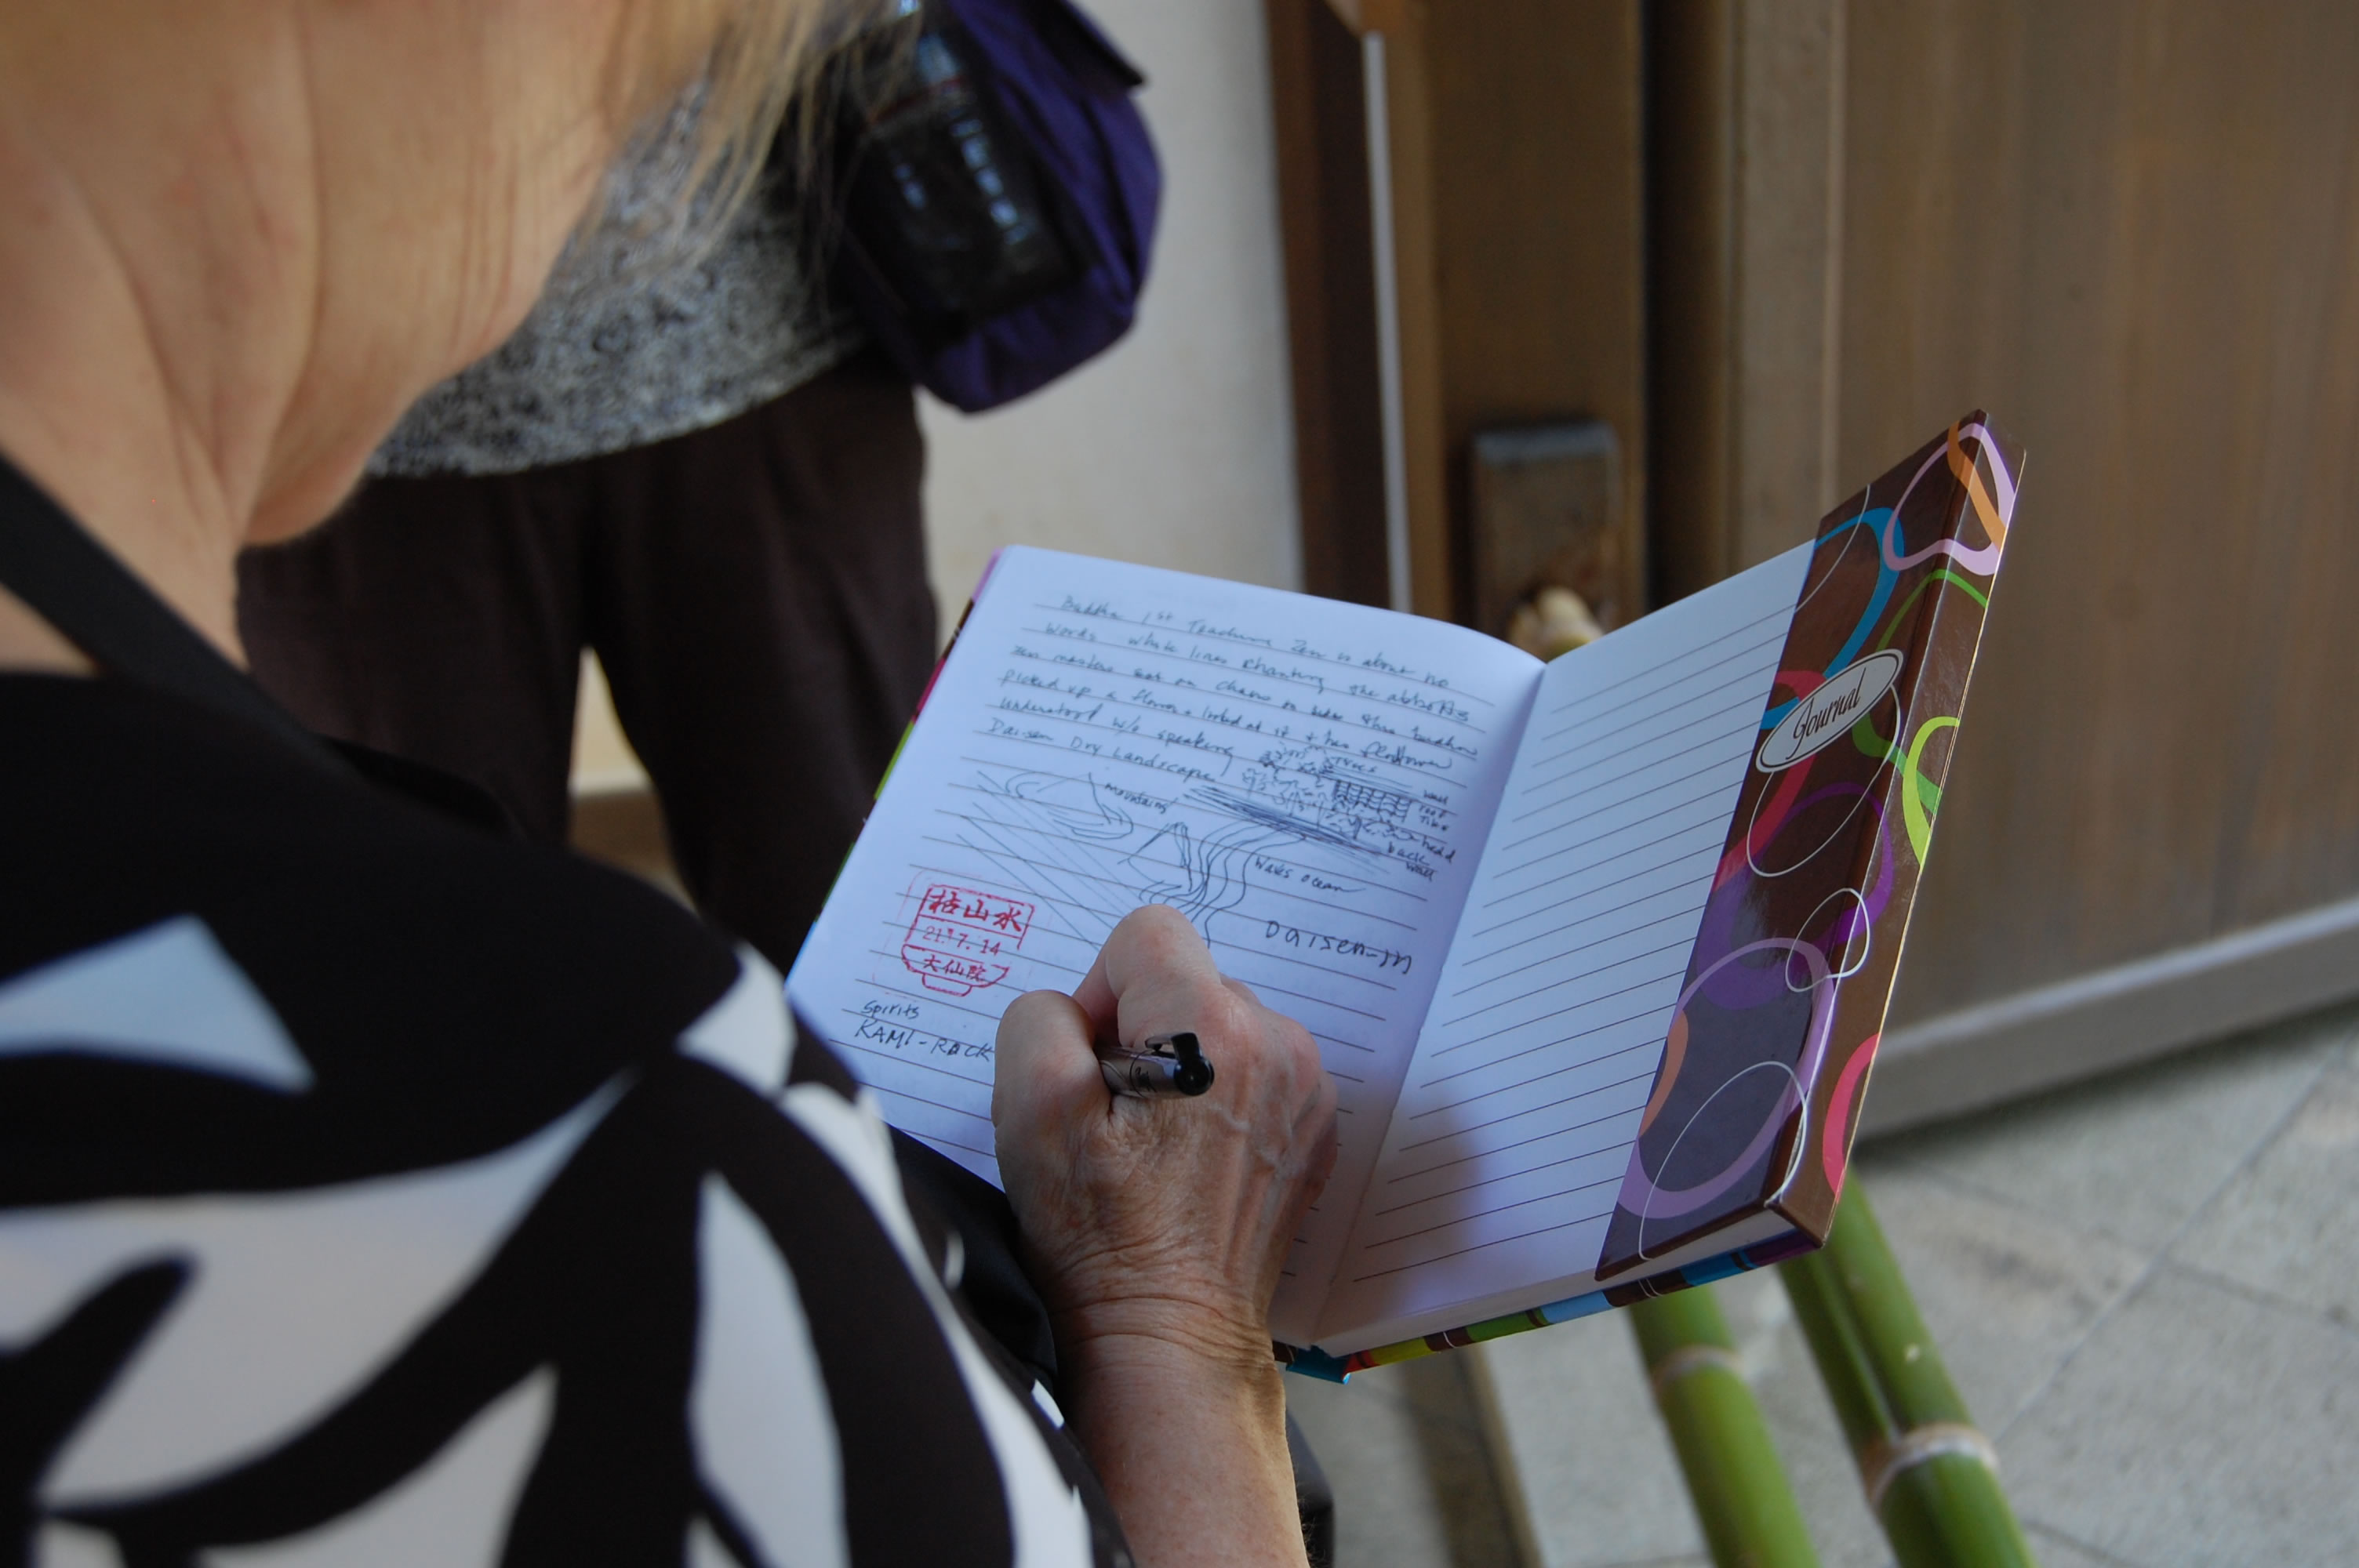 Buddha 1st Teaching Zen is about no
words while lines chanting the
zen masters sat on chairs to
picked up a flower & looked at it & has
understood w/o speaking
Daisen Dry Landscape
trees
mountains
wall
roof
tile
head
back
wall
waves ocean
Daisen-in
枯山水
21.7.14
大仙院
spirits
KAMI-ROCK
Journal